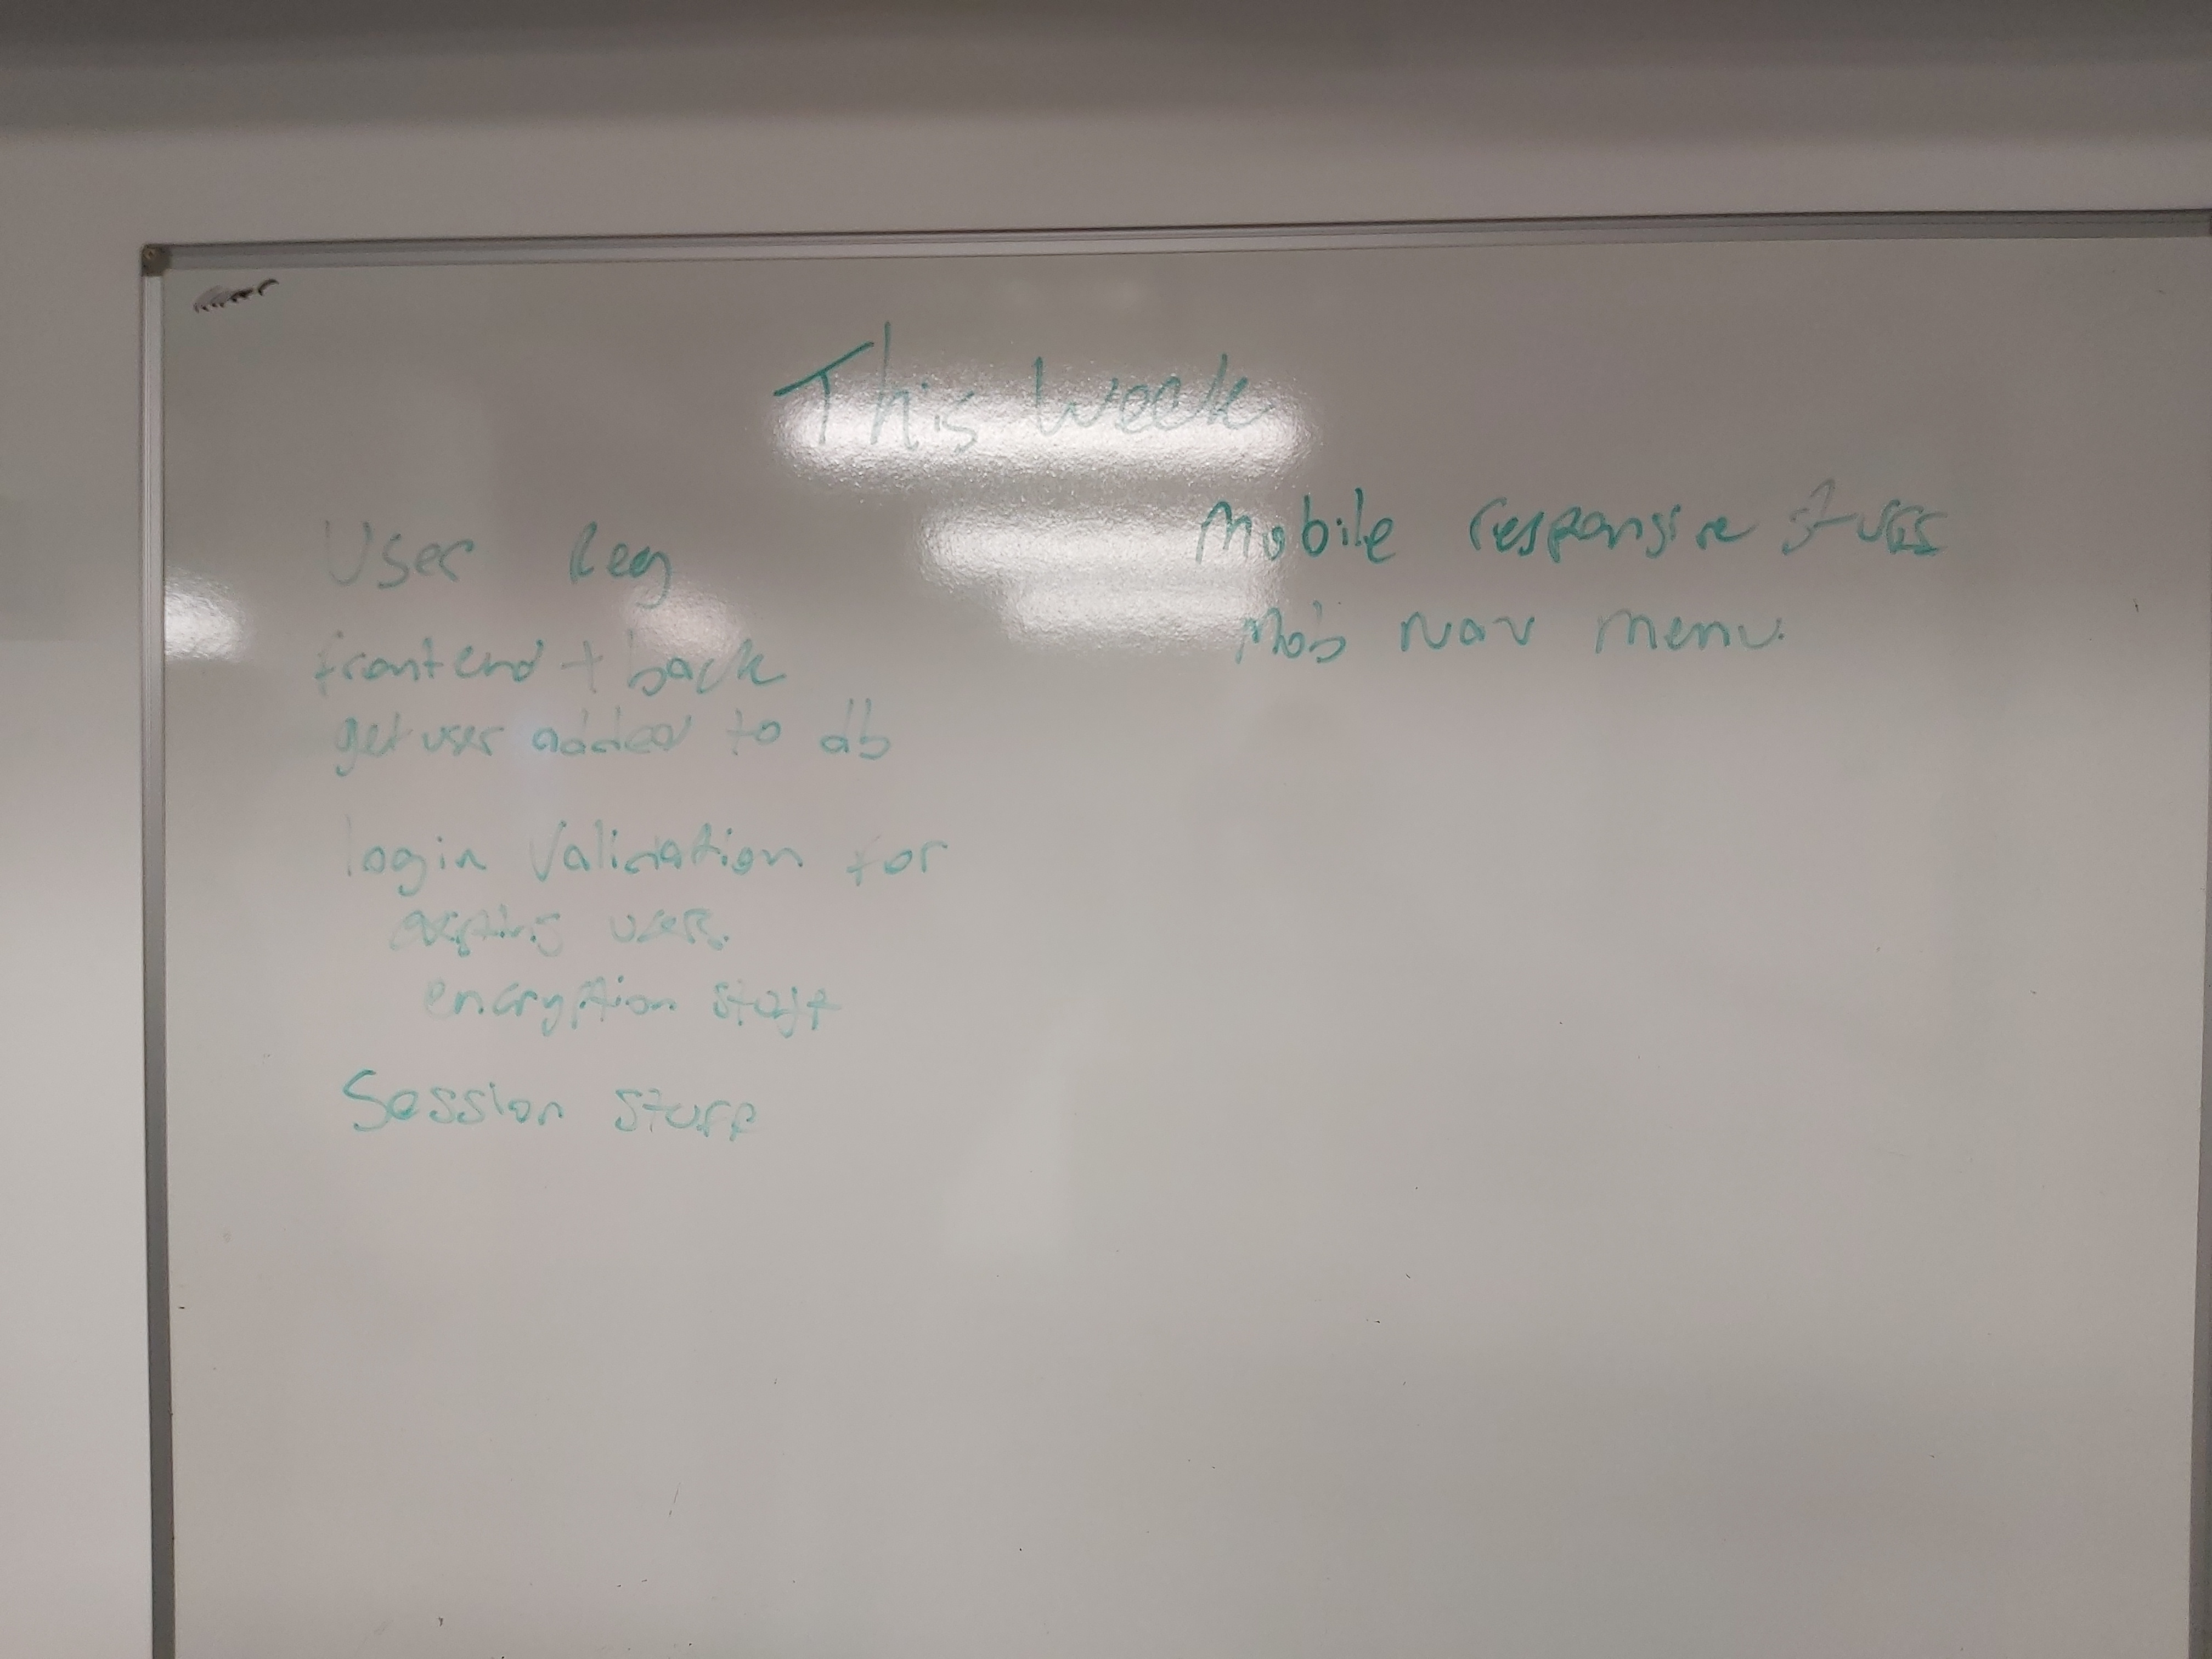 This Week
User Reg
frontend + back
get user added to db
login Validation for
users
encryption stuff
Session stuff
Mobile responsive stuff
Mob nav menu.